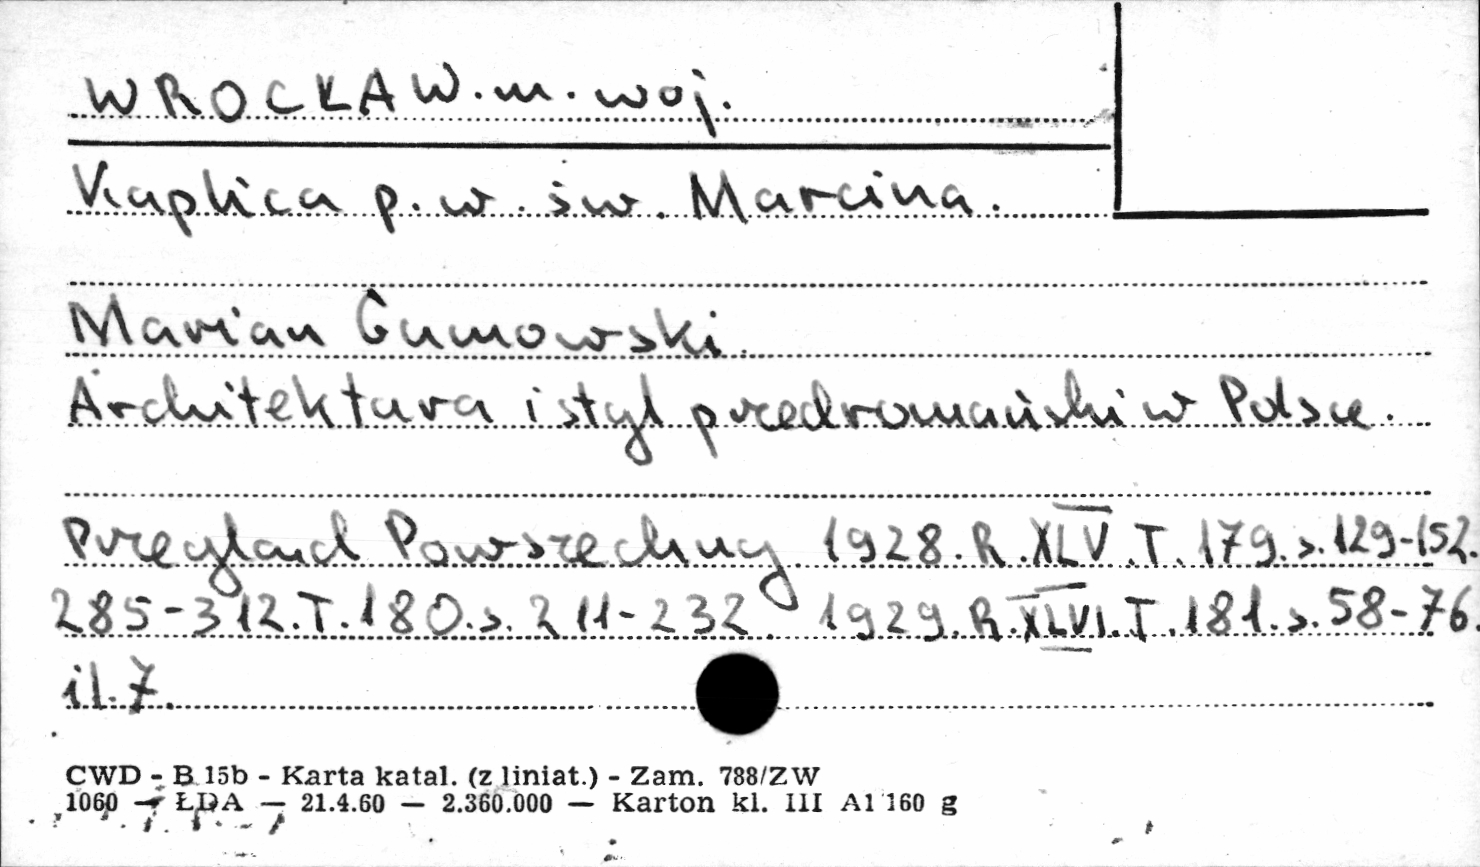 WROCŁAW. m. woj.
Kaplica p. w. św. Marcina.
Marian Gumowski.
Architektura i styl przedromański w Polsce.
Przegląd Powszechny 1928. R. XLV. T. 179. s. 129-152.
285-312. T. 180. s. 211-232. 1929. R. XLVI. T. 181. s. 58-76.
il. 7.
CWD - B 15b - Karta katal. (z liniat.) - Zam. 788/ZW
1060 — ŁDA — 21.4.60 — 2.360.000 — Karton kl. III A1 160 g